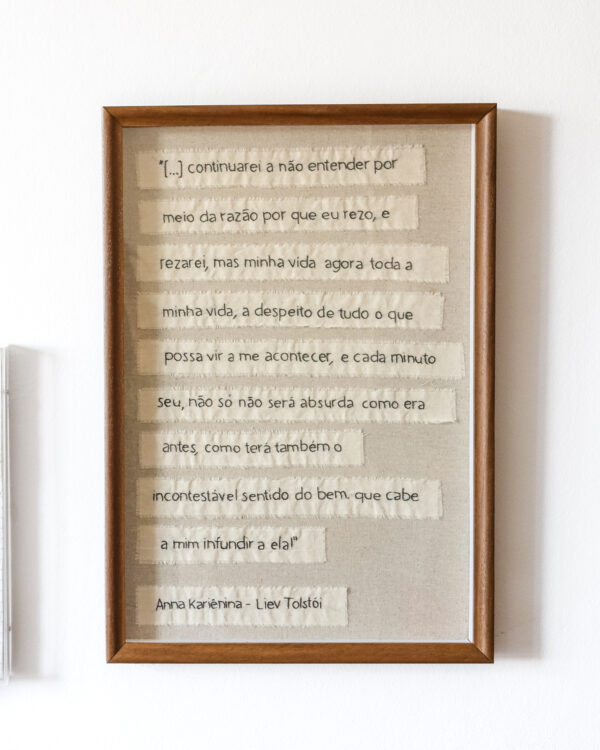 "[...] continuarei a não entender por
meio da razão por que eu rezo, e
rezarei, mas minha vida agora toda a
minha vida, a despeito de tudo o que
possa vir a me acontecer, e cada minuto
seu, não só não será absurda como era
antes, como terá também o
incontestável sentido do bem que cabe
a mim infundir a ela!"
Anna Kariênina - Liev Tolstói